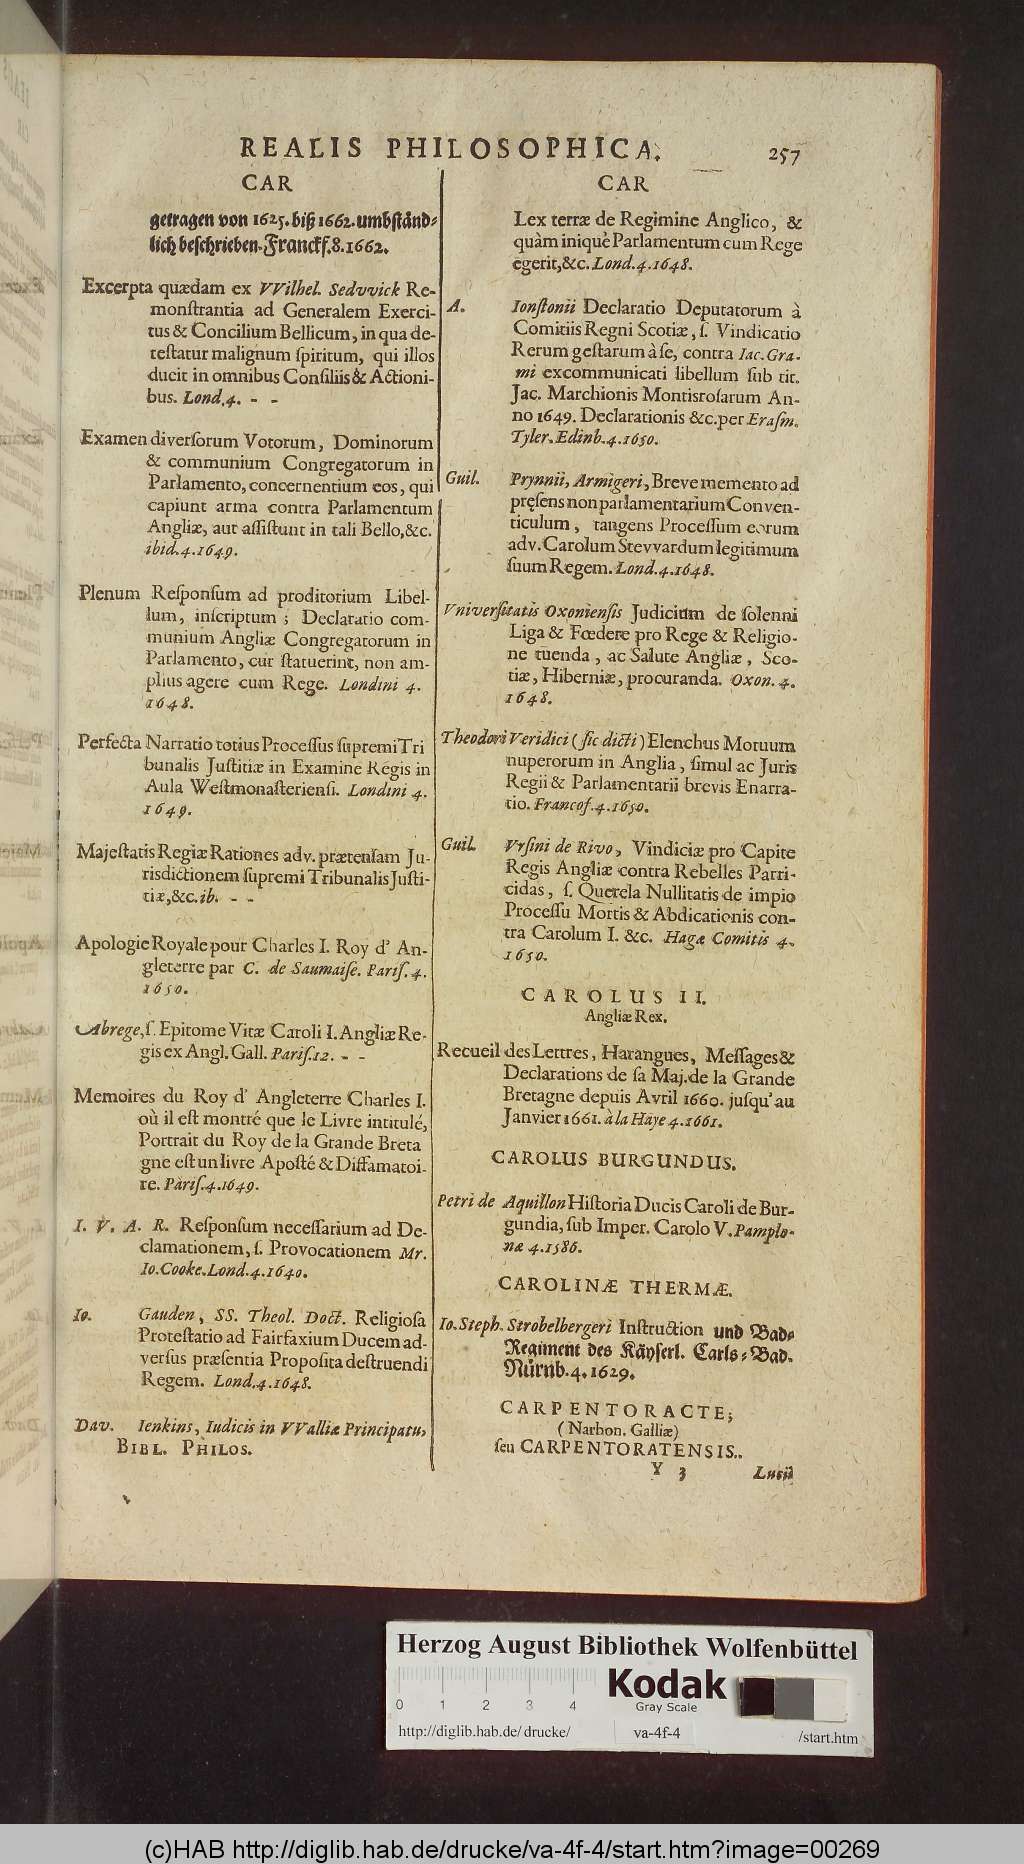 REALIS PHILOSOPHICA. 257
CAR
getragen von 1625. biß 1662. umbständ-
lich beschrieben. Franckf. 8. 1662.
Excerpta quædam ex VVilhel. Sedvvick Re-
monſtrantia ad Generalem Exerci-
tus & Concilium Bellicum, in qua de-
teſtatur malignum ſpiritum, qui illos
ducit in omnibus Conſiliis & Actioni-
bus. Lond. 4. - -
Examen diverſorum Votorum, Dominorum
& communium Congregatorum in
Parlamento, concernentium eos, qui
capiunt arma contra Parlamentum
Angliæ, aut aſſiſtunt in tali Bello, &c.
ibid. 4. 1649.
Plenum Reſponſum ad proditorium Libel-
lum, inſcriptum; Declaratio com-
munium Angliæ Congregatorum in
Parlamento, cur ſtatuerint, non am-
plius agere cum Rege. Londini 4.
1648.
Perfecta Narratio totius Proceſſus ſupremi Tri
bunalis Juſtitiæ in Examine Regis in
Aula Weſtmonaſterienſi. Londini 4.
1649.
Majeſtatis Regiæ Rationes adv. prætenſam Ju-
risdictionem ſupremi Tribunalis Juſti-
tiæ, &c. ib. - -
Apologie Royale pour Charles I. Roy d' An-
gleterre par C. de Saumaiſe. Pariſ. 4.
1650.
Abrege, ſ. Epitome Vitæ Caroli I. Angliæ Re-
gis ex Angl. Gall. Pariſ. 12. - -
Memoires du Roy d' Angleterre Charles I.
où il eſt montré que le Livre intitulé,
Portrait du Roy de la Grande Breta
gne eſt un livre Apoſté & Diffamatoi-
re. Pariſ. 4. 1649.
I. V. A. R. Reſponſum neceſſarium ad De-
clamationem, ſ. Provocationem Mr.
Io. Cooke. Lond. 4. 1640.
Io. Gauden, SS. Theol. Doct. Religioſa
Proteſtatio ad Fairfaxium Ducem ad-
verſus præſentia Propoſita deſtruendi
Regem. Lond. 4. 1648.
Dav. Ienkins, Iudicis in VValliæ Principatu,
BIBL. PHILOS.
CAR
Lex terræ de Regimine Anglico, &
quàm iniquè Parlamentum cum Rege
egerit, &c. Lond. 4. 1648.
A. Ionſtonii Declaratio Deputatorum à
Comitiis Regni Scotiæ, ſ. Vindicatio
Rerum geſtarum à ſe, contra Iac. Gra-
mi excommunicati libellum ſub tit.
Jac. Marchionis Montisroſarum An-
no 1649. Declarationis &c. per Eraſm.
Tyler. Edinb. 4. 1650.
Guil. Prynnii, Armigeri, Breve memento ad
pręſens non parlamentarium Conven-
ticulum, tangens Proceſſum eorum
adv. Carolum Stevvardum legitimum
ſuum Regem. Lond. 4. 1648.
Vniverſitatis Oxonienſis Judicium de ſolenni
Liga & Fœdere pro Rege & Religio-
ne tuenda, ac Salute Angliæ, Sco-
tiæ, Hiberniæ, procuranda. Oxon. 4.
1648.
Theodori Veridici (ſic dicti) Elenchus Motuum
nuperorum in Anglia, ſimul ac Juris
Regii & Parlamentarii brevis Enarra-
tio. Francof. 4. 1650.
Guil. Vrſini de Rivo, Vindiciæ pro Capite
Regis Angliæ contra Rebelles Parri-
cidas, ſ. Querela Nullitatis de impio
Proceſſu Mortis & Abdicationis con-
tra Carolum I. &c. Hagæ Comitis 4.
1650.
CAROLUS II.
Angliæ Rex.
Recueil des Lettres, Harangues, Meſſages &
Declarations de ſa Maj. de la Grande
Bretagne depuis Avril 1660. juſqu' au
Janvier 1661. à la Häye 4. 1661.
CAROLUS BURGUNDUS.
Petri de Aquillon Hiſtoria Ducis Caroli de Bur-
gundia, ſub Imper. Carolo V. Pamplo-
næ 4. 1586.
CAROLINÆ THERMÆ.
Io. Steph. Strobelbergeri Inſtruction und Bad-
Regiment des Käyserl. Carls-Bad.
Nürnb. 4. 1629.
CARPENTORACTE;
(Narbon. Galliæ)
ſeu CARPENTORATENSIS..
Y 3 Lucii
Herzog August Bibliothek Wolfenbüttel
0 1 2 3 4
Kodak
Gray Scale
http://diglib.hab.de/drucke/ va-4f-4 /start.htm
(c)HAB http://diglib.hab.de/drucke/va-4f-4/start.htm?image=00269